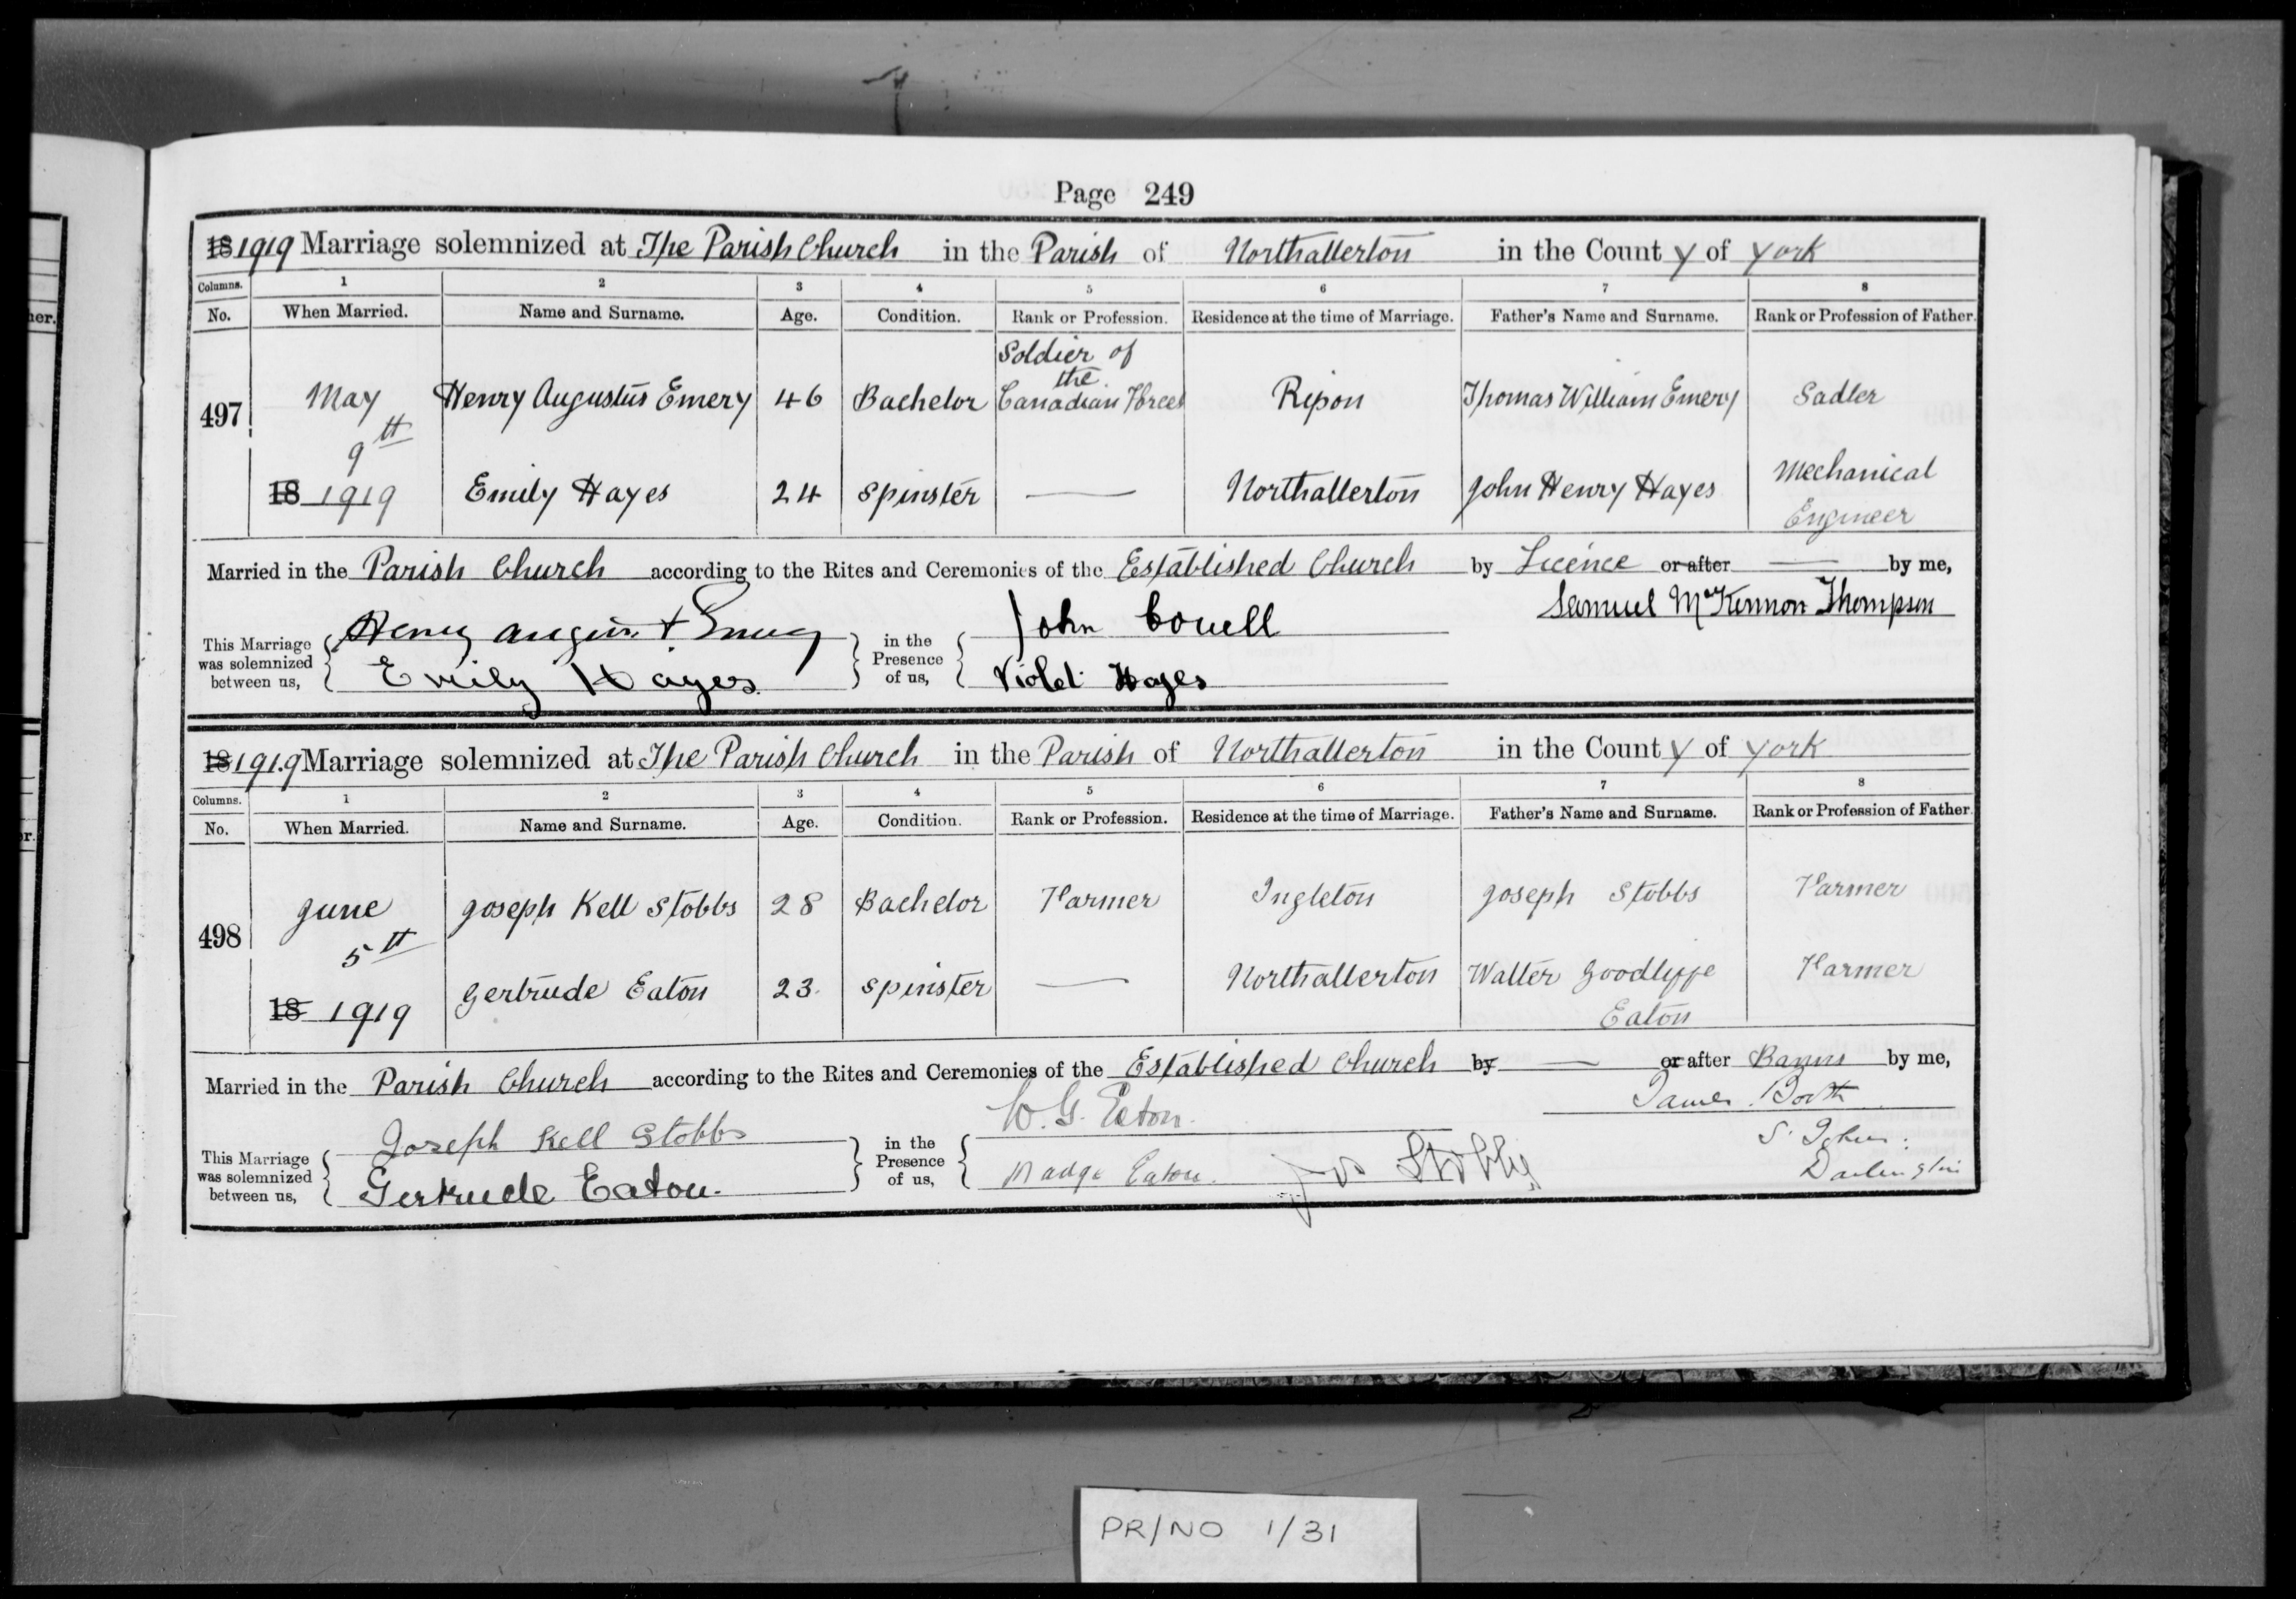 Page 249
18 1919 Marriage solemnized at The Parish Church in the Parish of Northallerton in the County of York
Columns. 1 2 3 4 5 6 7 8
No. When Married. Name and Surname. Age. Condition. Rank or Profession. Residence at the time of Marriage. Father's Name and Surname. Rank or Profession of Father.
Soldier of
the
497 May Henry Augustus Emery 46 Bachelor Canadian Forces Ripon Thomas William Emery Sadler
9th
18 1919 Emily Hayes 24 Spinster — Northallerton John Henry Hayes Mechanical
Engineer
Married in the Parish Church according to the Rites and Ceremonies of the Established Church by Licence or after — by me,
Samuel McKennon Thompson
This Marriage was solemnized between us, Henry August Emery in the Presence of us, John Cowell
Emily Hayes Violet Hayes
18 1919 Marriage solemnized at The Parish Church in the Parish of Northallerton in the County of York
Columns. 1 2 3 4 5 6 7 8
No. When Married. Name and Surname. Age. Condition. Rank or Profession. Residence at the time of Marriage. Father's Name and Surname. Rank or Profession of Father.
498 June Joseph Kell Stobbs 28 Bachelor Farmer Ingleton Joseph Stobbs Farmer
5th
18 1919 Gertrude Eaton 23. Spinster — Northallerton Walter Goodliffe Farmer
Eaton
Married in the Parish Church according to the Rites and Ceremonies of the Established Church by — or after Banns by me,
James Booth
This Marriage was solemnized between us, Joseph Kell Stobbs in the Presence of us, W. G. Eaton.
Gertrude Eaton. Madge Eaton. Jos Stobbs
S. Johns.
Darlington
PR/NO 1/31